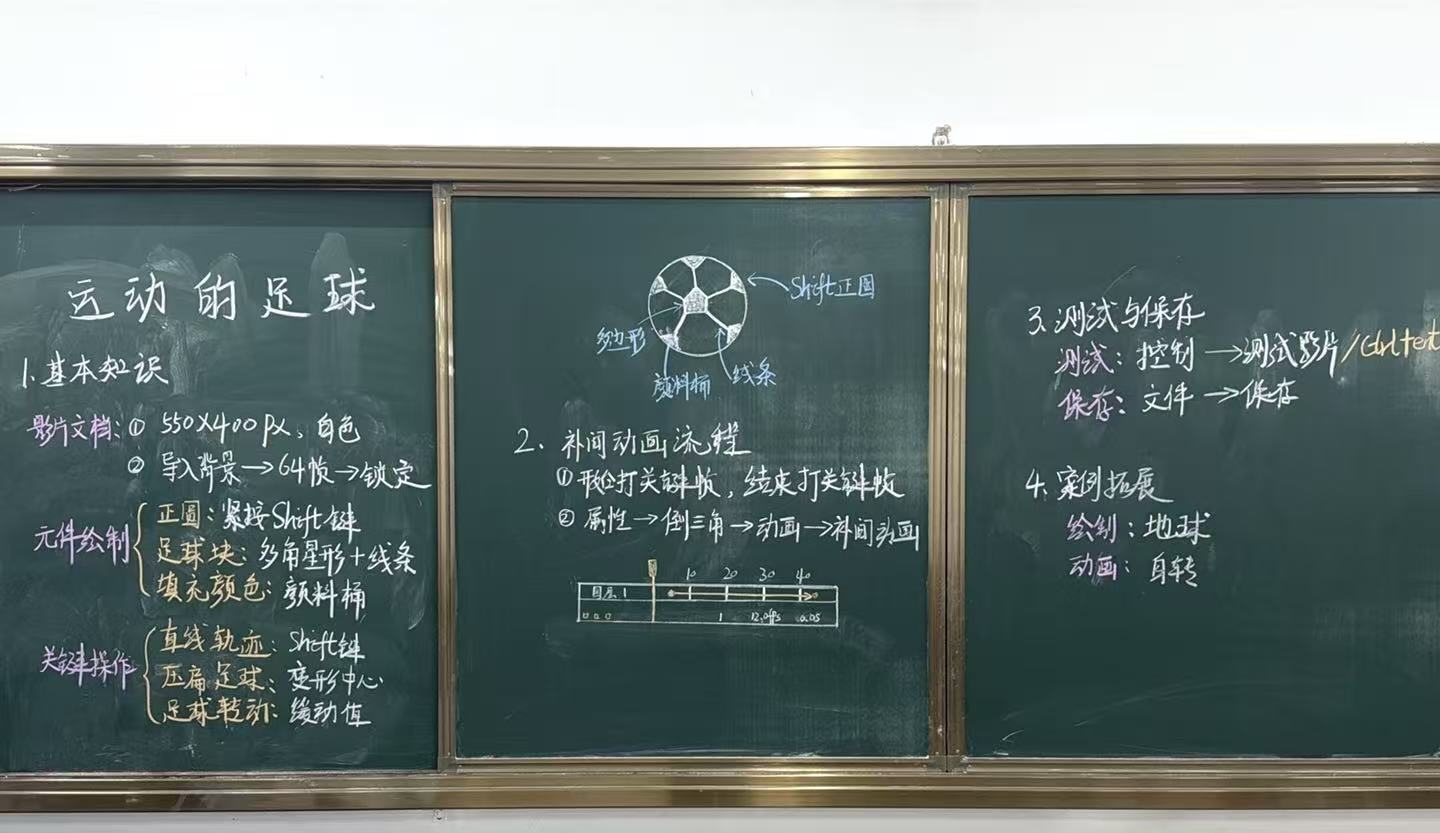 运动的足球
1.基本知识
影片文档:① 550×400px、白色
② 导入背景→64帧→锁定
元件绘制
正圆:紧按Shift键
足球块:多角星形+线条
填充颜色:颜料桶
关键操作
直线轨迹:Shift键
压扁足球:变形中心
足球转动:缓动值
Shift正圆
多边形
颜料桶
线条
2、补间动画流程
①开始打关键帧,结束打关键帧
②属性→倒三角→动画→补间动画
10 20 30 40
图层1
1 12.0fps 0.0s
3、测试与保存
测试:控制→测试影片/Ctrl
保存:文件→保存
4、案例拓展
绘制:地球
动画:自转